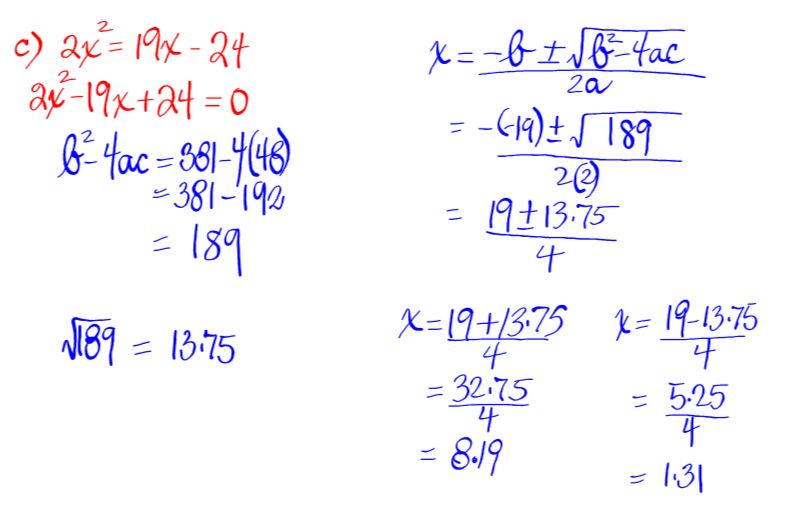 c) 2x² = 19x - 24
2x² - 19x + 24 = 0
b² - 4ac = 381 - 4(48)
= 381 - 192
= 189
√189 = 13.75
x = (-b ± √(b² - 4ac))/2a
= (-(-19) ± √189)/2(2)
= (19 ± 13.75)/4
x = (19 + 13.75)/4
= 32.75/4
= 8.19
x = (19 - 13.75)/4
= 5.25/4
= 1.31